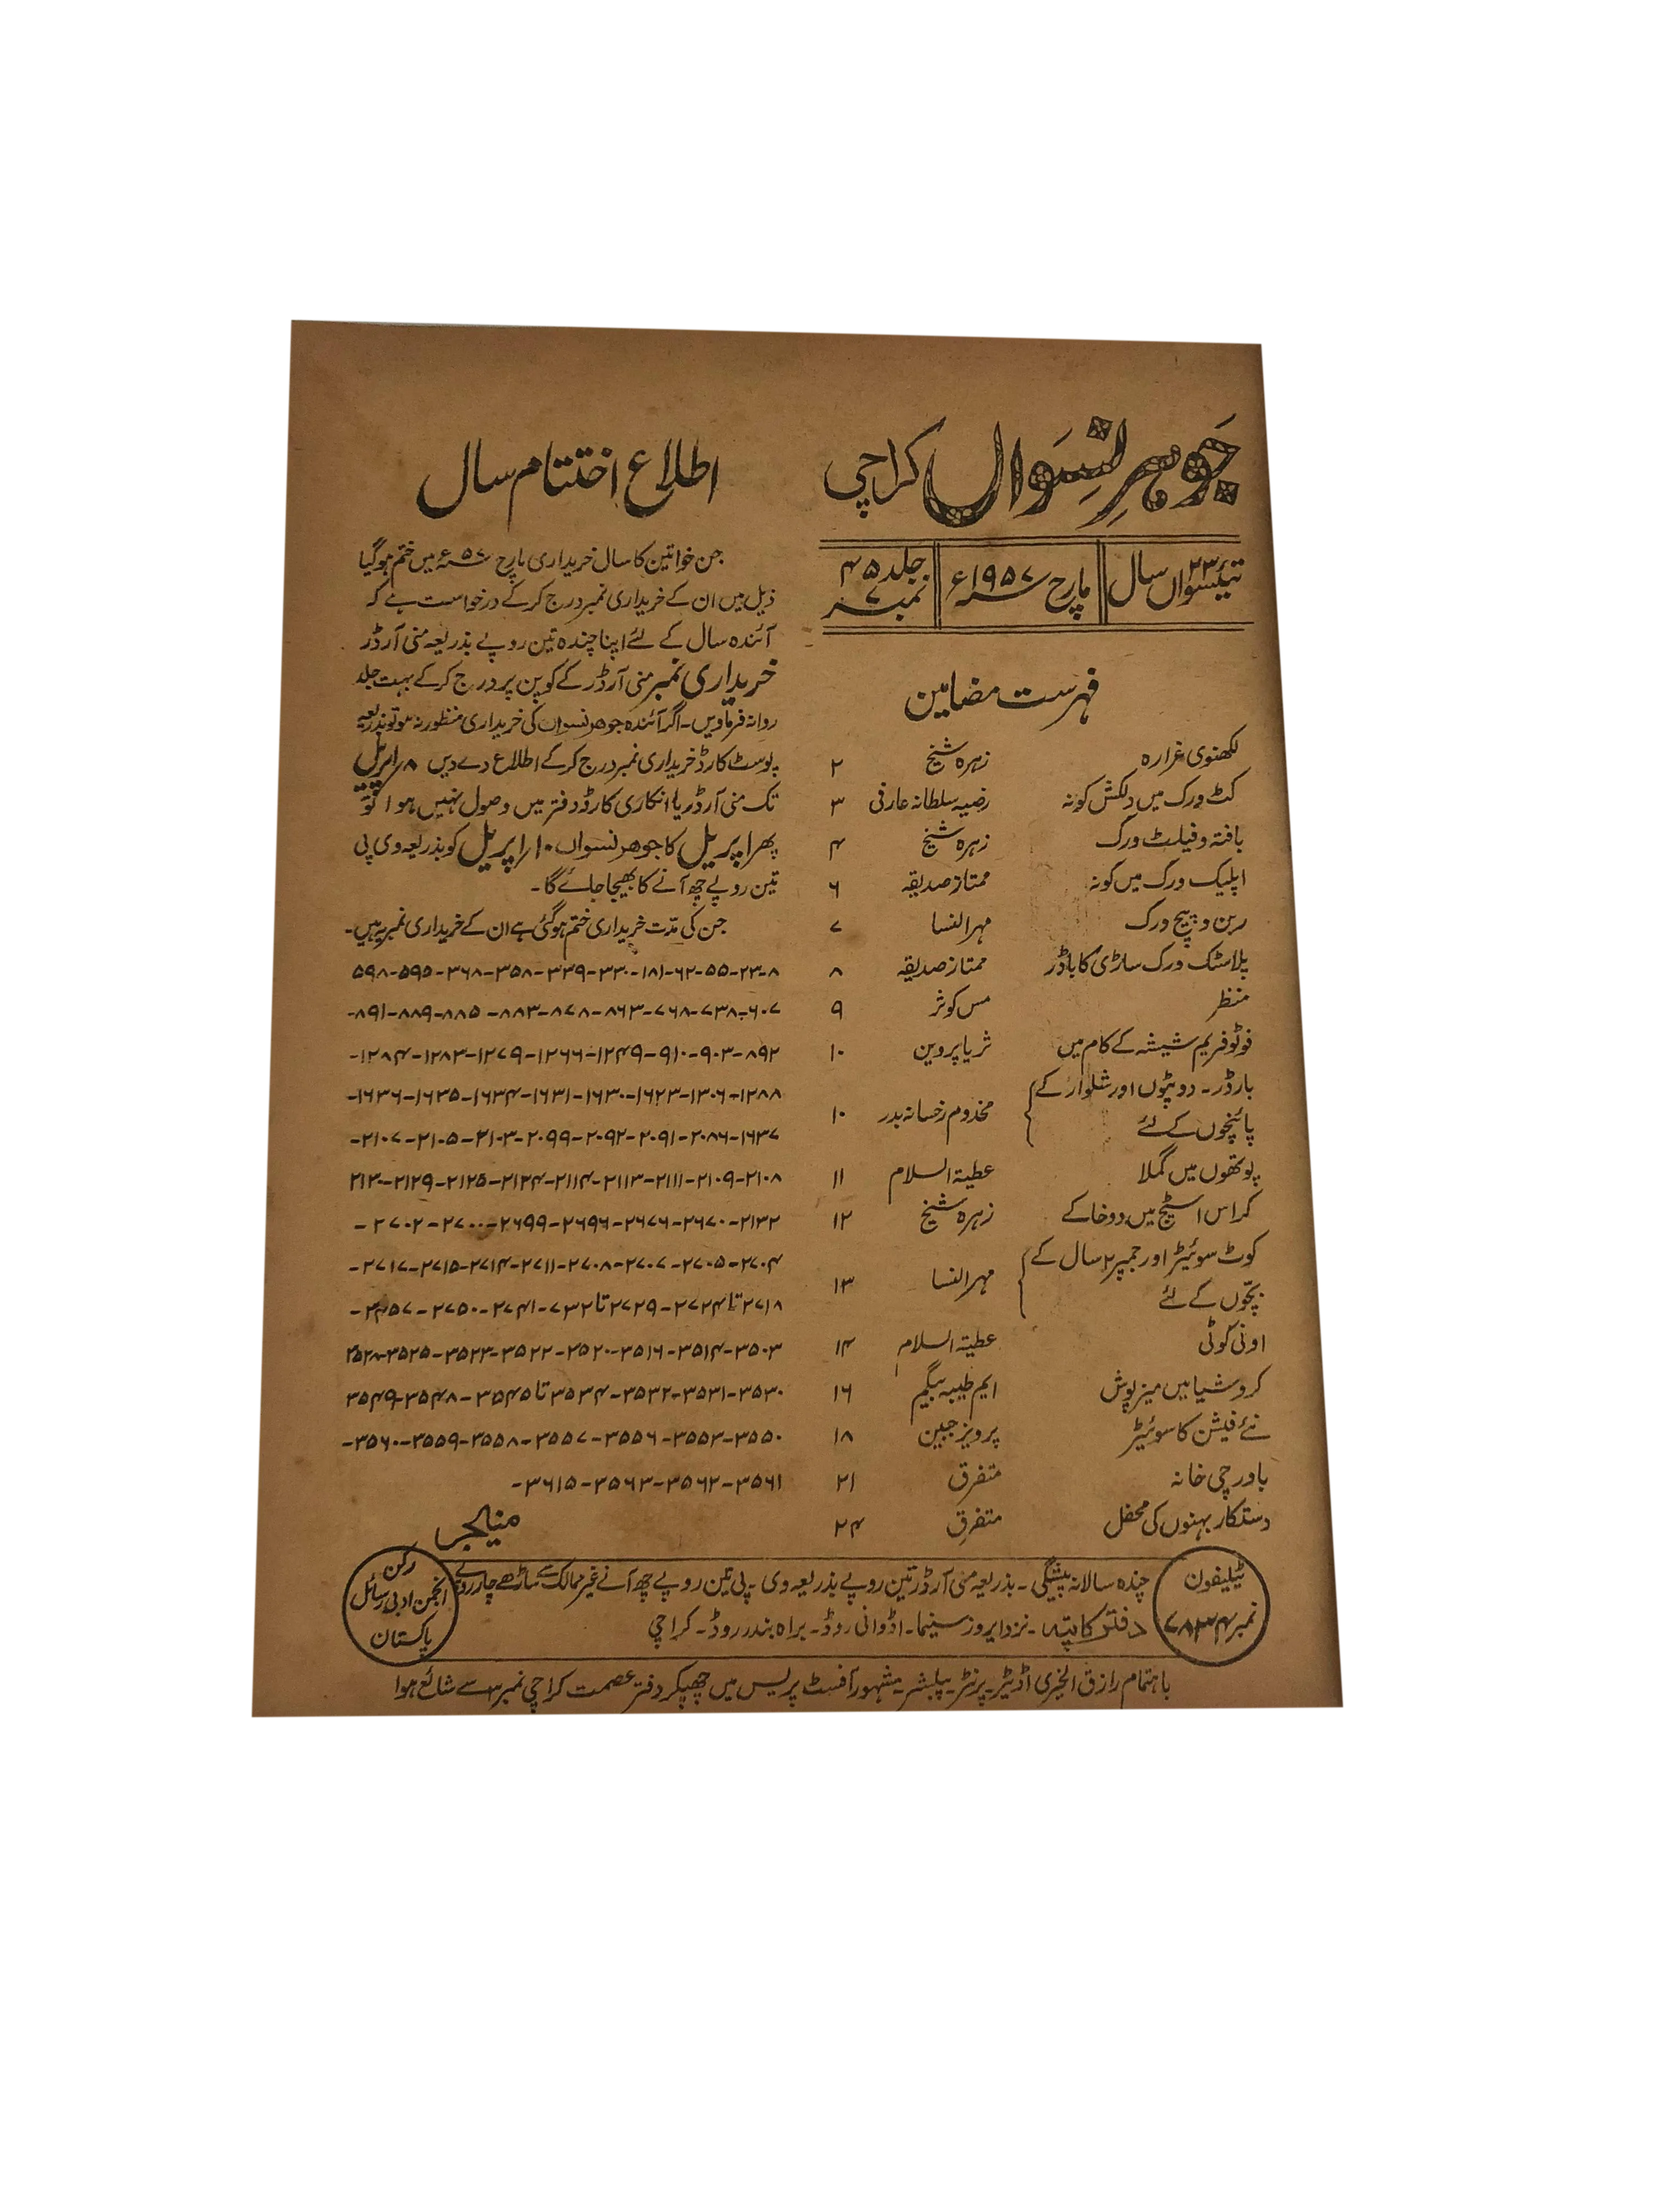 جوہرِ نسواں کراچی
تیئسواں ۲۳ سال
مارچ ۱۹۵۷ء
جلد ۴۵
نمبر ۷
فہرست مضامین
لکھنوی غرارہ زہرہ شیخ ۲
کٹ ورک میں دلکش کونہ رضیہ سلطانہ عارفی ۳
بافتہ و فیلٹ ورک زہرہ شیخ ۴
اپلیک ورک میں کونہ ممتاز صدیقہ ۶
ربن و پیچ ورک مہرالنسا ۷
پلاسٹک ورک ساڑی کا باڈر ممتاز صدیقہ ۸
منظر مس کوثر ۹
فوٹو فریم شیشہ کے کام میں ثریا پروین ۱۰
بارڈر۔ دوپٹوں اور شلوار کے
پائنچوں کے لئے مخدوم رخسانہ بدر ۱۰
پوتھوں میں گملا عطیۃ السلام ۱۱
کراس اسٹیچ میں دو خاکے زہرہ شیخ ۱۲
کوٹ سوئیٹر اور جمپر ۲ سال کے
بچّوں کے لئے مہرالنسا ۱۳
اونی کوٹی عطیۃ السلام ۱۴
کروشیا میں میزپوش ایم طیبہ بیگم ۱۶
نئے فیشن کا سوئیٹر پرویز جبین ۱۸
باورچی خانہ متفرق ۲۱
دستکار بہنوں کی محفل متفرق ۲۴
اطلاع اختتام سال
جن خواتین کا سال خریداری مارچ ۵۷ء میں ختم ہوگیا
ذیل میں ان کے خریداری نمبر درج کرکے درخواست ہے کہ
آئندہ سال کے لئے اپنا چندہ تین روپے بذریعہ منی آرڈر
خریداری نمبر منی آرڈر کے کوپن پر درج کرکے بہت جلد
روانہ فرماویں۔ اگر آئندہ جوہر نسواں کی خریداری منظور نہ ہو تو بذریعہ
پوسٹ کارڈ خریداری نمبر درج کرکے اطلاع دے دیں ۸ اپریل
تک منی آرڈر یا انکاری کارڈ دفتر میں وصول نہیں ہوا تو
پھر اپریل کا جوہر نسواں ۱۰ اپریل کو بذریعہ وی پی
تین روپے چھ آنے کا بھیجا جائے گا۔
جن کی مدّت خریداری ختم ہوگئی ہے ان کے خریداری نمبر یہ ہیں۔
۸-۲۳-۵۵-۶۲-۱۸۱-۳۳۰-۳۳۹-۳۵۸-۳۶۸-۵۹۵-۵۹۸
۶۰۷-۷۳۸-۷۶۸-۸۶۳-۸۷۸-۸۸۳-۸۸۵-۸۸۹-۸۹۱-
۸۹۲-۹۰۳-۹۱۰-۱۲۴۹-۱۲۶۶-۱۲۷۹-۱۲۸۳-۱۲۸۴-
۱۲۸۸-۱۳۰۶-۱۶۲۳-۱۶۳۰-۱۶۳۱-۱۶۳۴-۱۶۳۵-۱۶۳۶-
۱۶۳۷-۲۰۸۶-۲۰۹۱-۲۰۹۲-۲۰۹۹-۲۱۰۳-۲۱۰۵-۲۱۰۷-
۲۱۰۸-۲۱۰۹-۲۱۱۱-۲۱۱۳-۲۱۱۴-۲۱۲۴-۲۱۲۵-۲۱۲۹-۲۱۳۰
۲۱۳۲-۲۶۷۰-۲۶۷۶-۲۶۹۶-۲۶۹۹-۲۷۰۰-۲۷۰۲-
۲۷۰۴-۲۷۰۵-۲۷۰۷-۲۷۰۸-۲۷۱۱-۲۷۱۴-۲۷۱۵-۲۷۱۷-
۲۷۱۸ تا ۲۷۲۴-۲۷۲۹ تا ۷۳۲-۲۷۴۱-۲۷۵۰-
۳۵۰۳-۳۵۱۴-۳۵۱۶-۳۵۲۰-۳۵۲۲-۳۵۲۳-۳۵۲۵-۳۵۲۸
۳۵۳۰-۳۵۳۱-۳۵۳۲-۳۵۳۴ تا ۳۵۴۵-۳۵۴۸-۳۵۴۹
۳۵۵۰-۳۵۵۳-۳۵۵۶-۳۵۵۷-۳۵۵۸-۳۵۵۹-۳۵۶۰-
۳۵۶۱-۳۵۶۲-۳۵۶۳-۳۶۱۵-
منیجر
ٹیلیفون
نمبر ۷۸۳۴
چندہ سالانہ پیشگی۔ بذریعہ منی آرڈر تین روپے بذریعہ وی۔ پی تین روپے چھ آنے غیر ممالک سے ساڑھے چار روپے
دفتر کا پتہ۔ نزد ایروز سنیما۔ اڈوانی روڈ۔ براہ بندر روڈ۔ کراچی
رکن
انجمن ادبی رسائل
پاکستان
باہتمام رازق الخیری اڈیٹر۔ پرنٹر۔ پبلشر۔ مشہور آفسٹ پریس میں چھپکر دفتر عصمت کراچی نمبر ۳ سے شائع ہوا